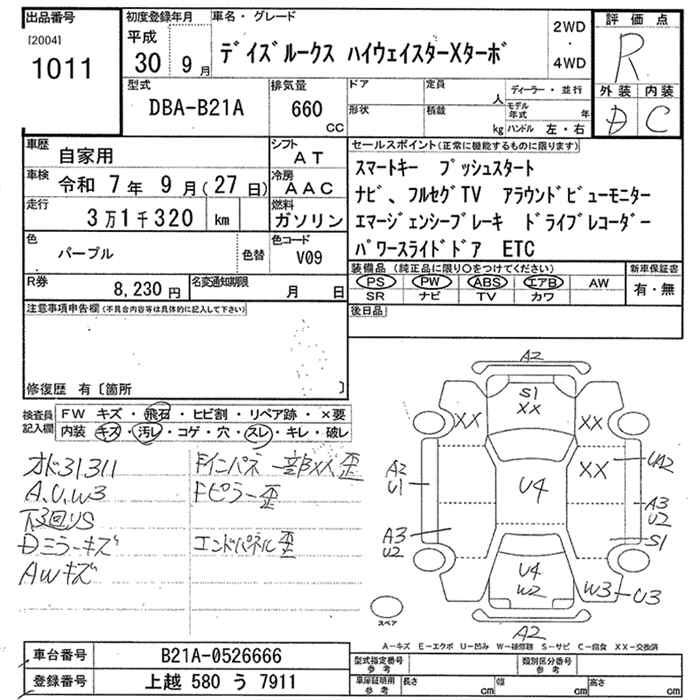 出品番号
[2004]
1011
初度登録年月
平成
30 9 月
車名・グレード
ﾃﾞｲｽﾞﾙｰｸｽ ﾊｲｳｪｲｽﾀｰXﾀｰﾎﾞ
2WD
・
4WD
評価点
R
外装 内装
D C
型式
DBA-B21A
排気量
660
CC
ドア
定員
人
形状
積載
kg
ディーラー・並行
モデル年式 年
ハンドル 左・右
車歴
自家用
シフト
AT
車検
令和 7年 9月(27日)
冷房
AAC
走行
3万1千320 km
燃料
ガソリン
色
パープル
色替
色コード
V09
R券
8,230 円
名変通知期限
月 日
セールスポイント(正常に機能するものに限ります)
ｽﾏｰﾄｷｰ ﾌﾟｯｼｭｽﾀｰﾄ
ﾅﾋﾞ､ ﾌﾙｾｸﾞTV ｱﾗｳﾝﾄﾞﾋﾞｭｰﾓﾆﾀｰ
ｴﾏｰｼﾞｪﾝｼｰﾌﾞﾚｰｷ ﾄﾞﾗｲﾌﾞﾚｺｰﾀﾞｰ
ﾊﾟﾜｰｽﾗｲﾄﾞﾄﾞｱ ETC
装備品 (純正品に限り○をつけてください)
新車保証書
PS PW ABS エアB AW
SR ナビ TV カワ
有・無
後日品
注意事項申告欄(不具合内容等は具体的に記入して下さい)
修復歴 有〔箇所 〕
検査員記入欄
FW キズ・飛石・ヒビ割・リペア跡・×要
内装 キズ・汚レ・コゲ・穴・スレ・キレ・破レ
オド31311
A.U.W3
下回りS
Dミラーキズ
AWキズ
Fインパネ一部XX歪
Fピラー歪
エンドパネル歪
A2
S1
XX
XX
XX
XX
UA2
A2
U1
U4
A3
U2
A3
U2
S1
U4
W2
W3
U3
A2
スペア
A-キズ E-エクボ U-凹み W-補修跡 S-サビ C-腐食 XX-交換済
車台番号
B21A-0526666
登録番号
上越 580 う 7911
型式指定番号
参考
類別区分番号
参考
車庫証明用
参考
長さ cm
幅 cm
高さ cm